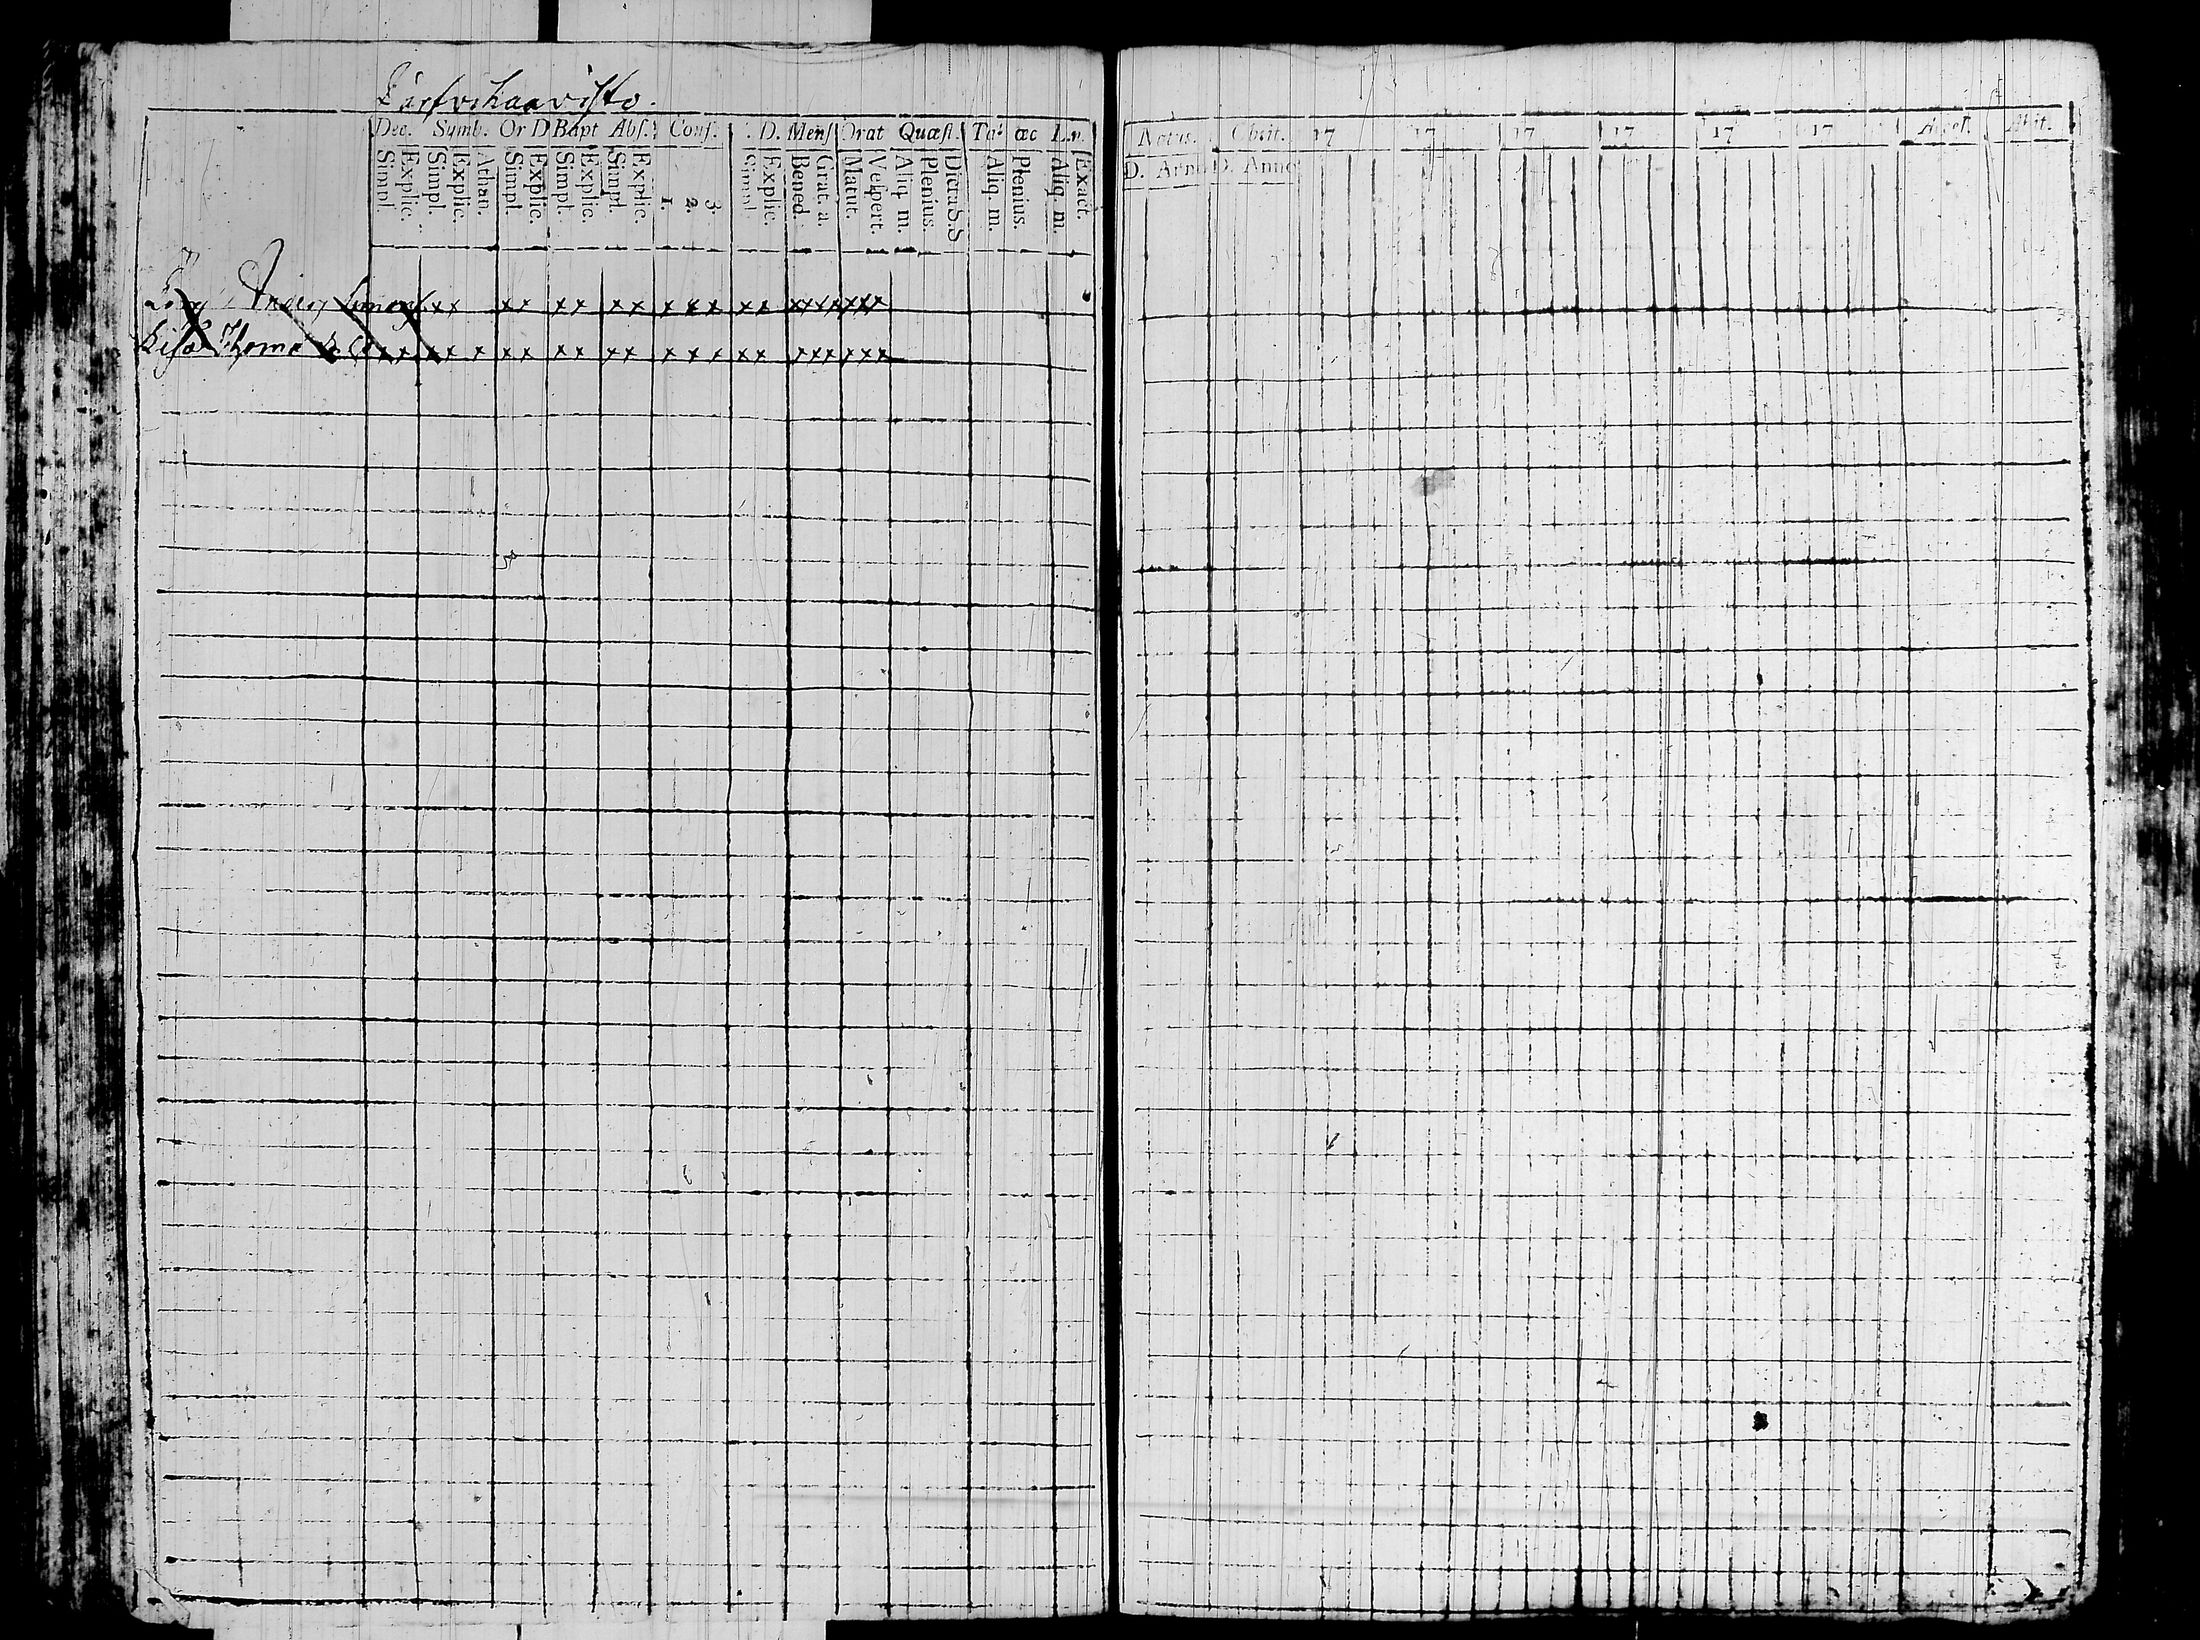 Dec. Symb. Or D Bapt Abs. Conf. D. Mens Orat Quæst. Tab œc L.n.
Simpl. Explic. Simpl. Explic. Athan. Simpl. Explic. Simpl. Explic. Simpl. Explic. 1. 2. 3 Simpl. Explic. Bened. Grat. a. Matut. Vespert. Aliq. m. Plenius. Dicta S.S Aliq. m. Plenius. Aliq. m. Exact.
Anders Simons xx xx xx xx x x x xx xxxx xxx
Lisa Thoma xx xx x xx xx xx x x x xx xxx xxx
Natus. Obiit. 17 17 17 17 17 17 Access. Abit.
D. Anno D. Anno